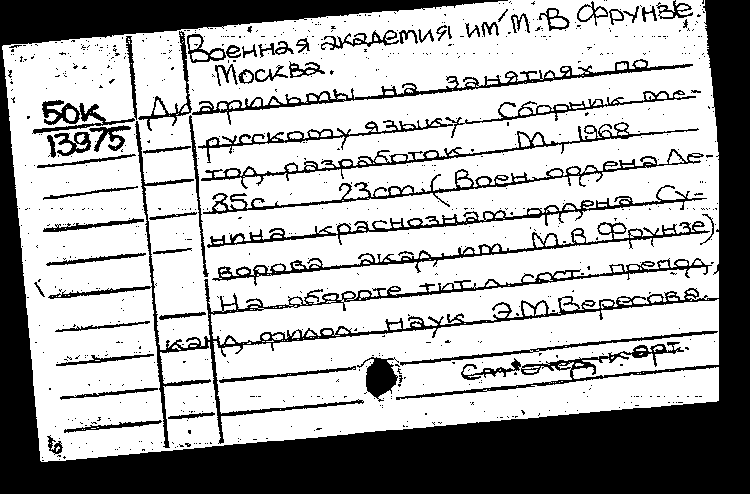 Военная академия им. М.В.Фрунзе.
Москва.
50К
13975
Диафильмы на занятиях по
русскому языку. Сборник ме-
тод. разработок. М., 1968
85с. 23cm. (Воен. ордена Ле-
нина краснознам. ордена Су-
ворова акад. им. М.В.Фрунзе).
На обороте тит. л. сост.: препод.,
канд. филол. наук Э.М.Вересова.
См. след. карт.